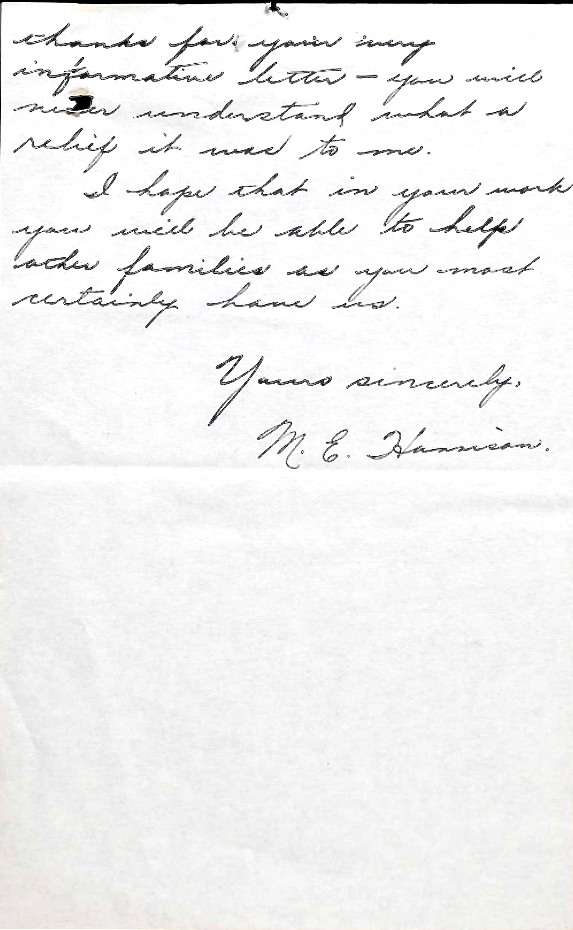 thanks for your very
informative letter – you will
never understand what a
relief it was to me.
I hope that in your work
you will be able to help
other families as you most
certainly have us.
Yours sincerely,
M. E. Harrison.